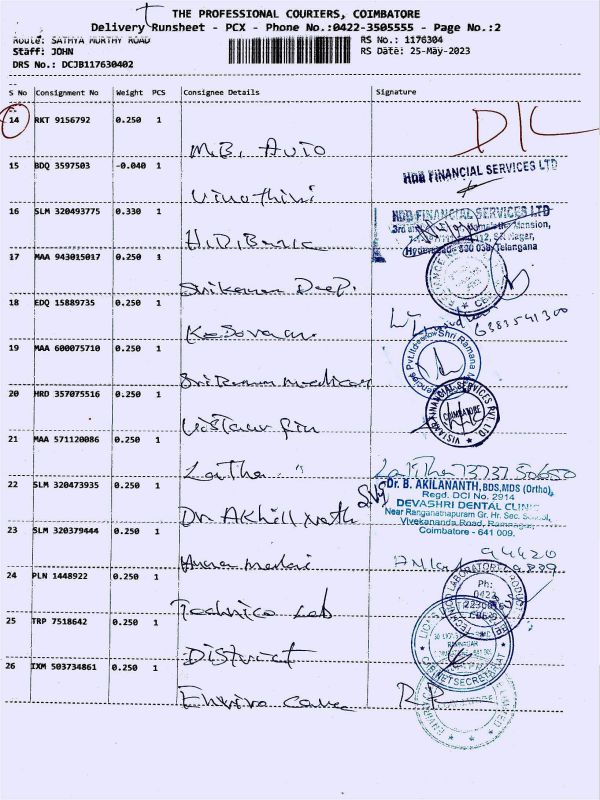 THE PROFESSIONAL COURIERS, COIMBATORE
Delivery Runsheet - PCX - Phone No.:0422-3505555 - Page No.:2
Route: SATHYA MURTHY ROAD
RS No.: 1176304
Staff: JOHN
RS Date: 25-May-2023
DRS No.: DCJB117630402
S No Consignment No Weight PCS Consignee Details Signature
14 RKT 9156792 0.250 1
M.B. Auto
D/L
15 BDQ 3597503 -0.040 1
Vinothini
HDB FINANCIAL SERVICES LTD
16 SLM 320493775 0.330 1
H.D.Bank
HDB FINANCIAL SERVICES LTD
Mansion,
Nagar,
Telangana
17 MAA 943015017 0.250 1
Deep.
18 EDQ 15889735 0.250 1
Kesavan
6383541300
19 MAA 600075710 0.250 1
Sri Ramana medicay
Shri Ramana
Pvt.Ltd
20 HRD 357075516 0.250 1
Vistaar fin
VISTAAR FINANCIAL SERVICES PVT. LTD
COIMBATORE
21 MAA 571120086 0.250 1
Latha "
Lalitha 73737 50650
22 SLM 320473935 0.250 1
Dr Akhill nath
Dr. B. AKILANANTH, BDS,MDS (Ortho),
Regd. DCI No. 2914
DEVASHRI DENTAL CLINIC
Near Ranganathapuram Gr. Hr. Sec. School,
Vivekananda Road, Ramnagar,
Coimbatore - 641 009.
23 SLM 320379444 0.250 1
94420
24 PLN 1448922 0.250 1
Technico Lab
Ph:
0422
25 TRP 7518642 0.250 1
District
CABINET SECRETARIAT
26 IXM 503734861 0.250 1
Enviro Care